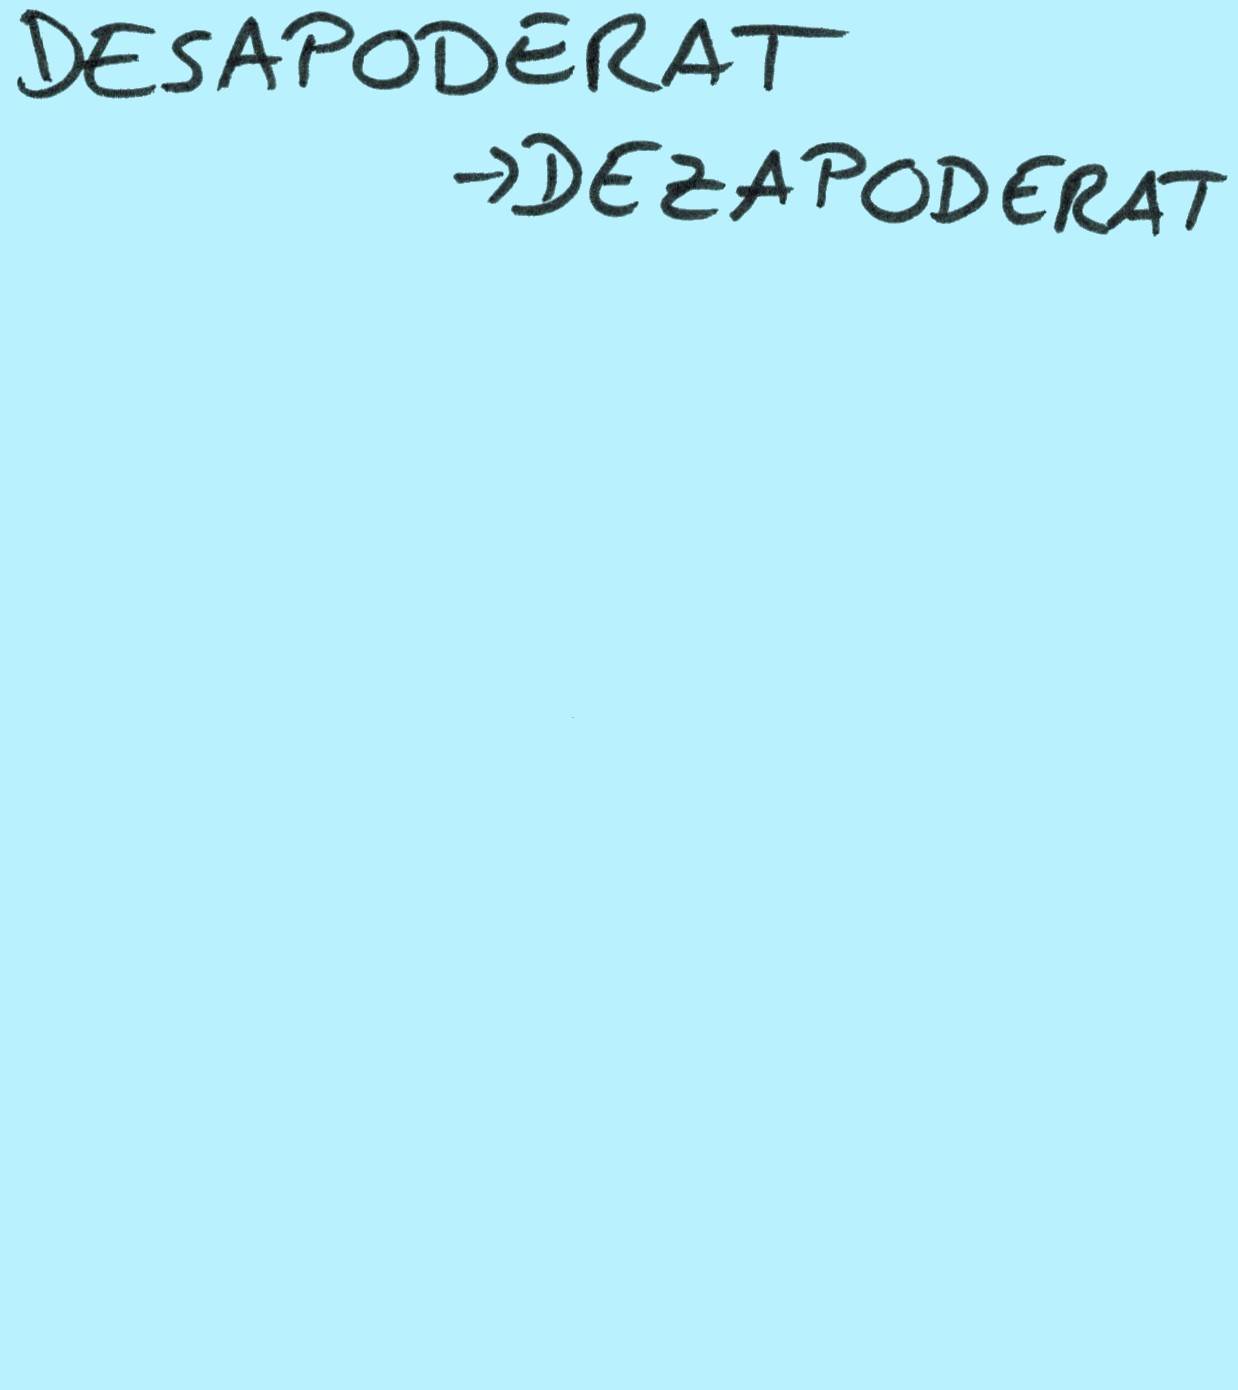 DESAPODERAT
→DEZAPODERAT